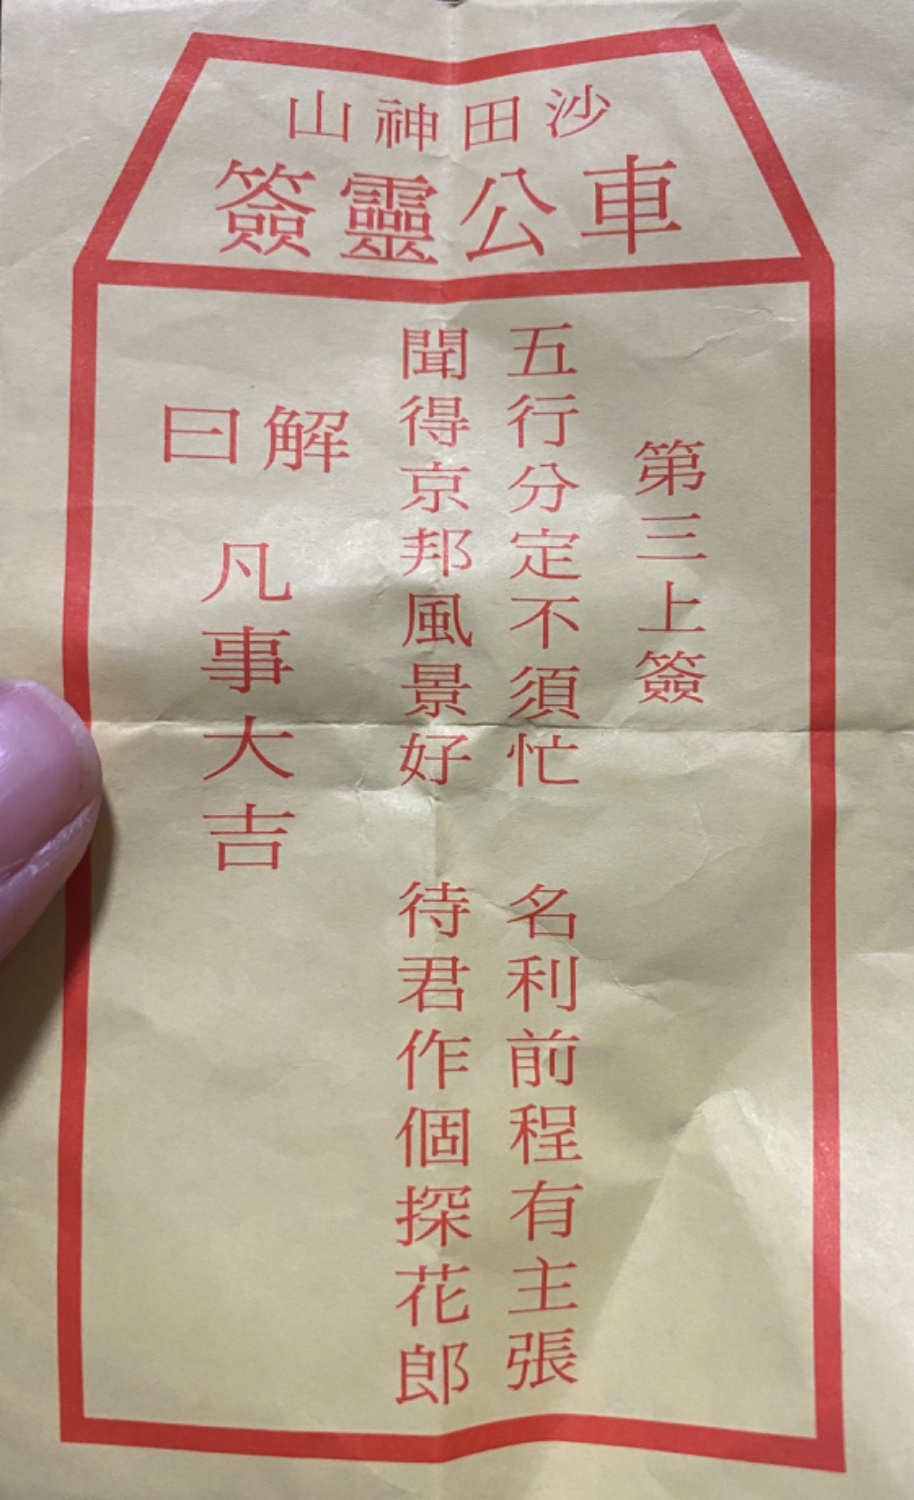 沙田神山
車公靈簽
第三上簽
五行分定不須忙 名利前程有主張
聞得京邦風景好 待君作個探花郎
解曰
凡事大吉